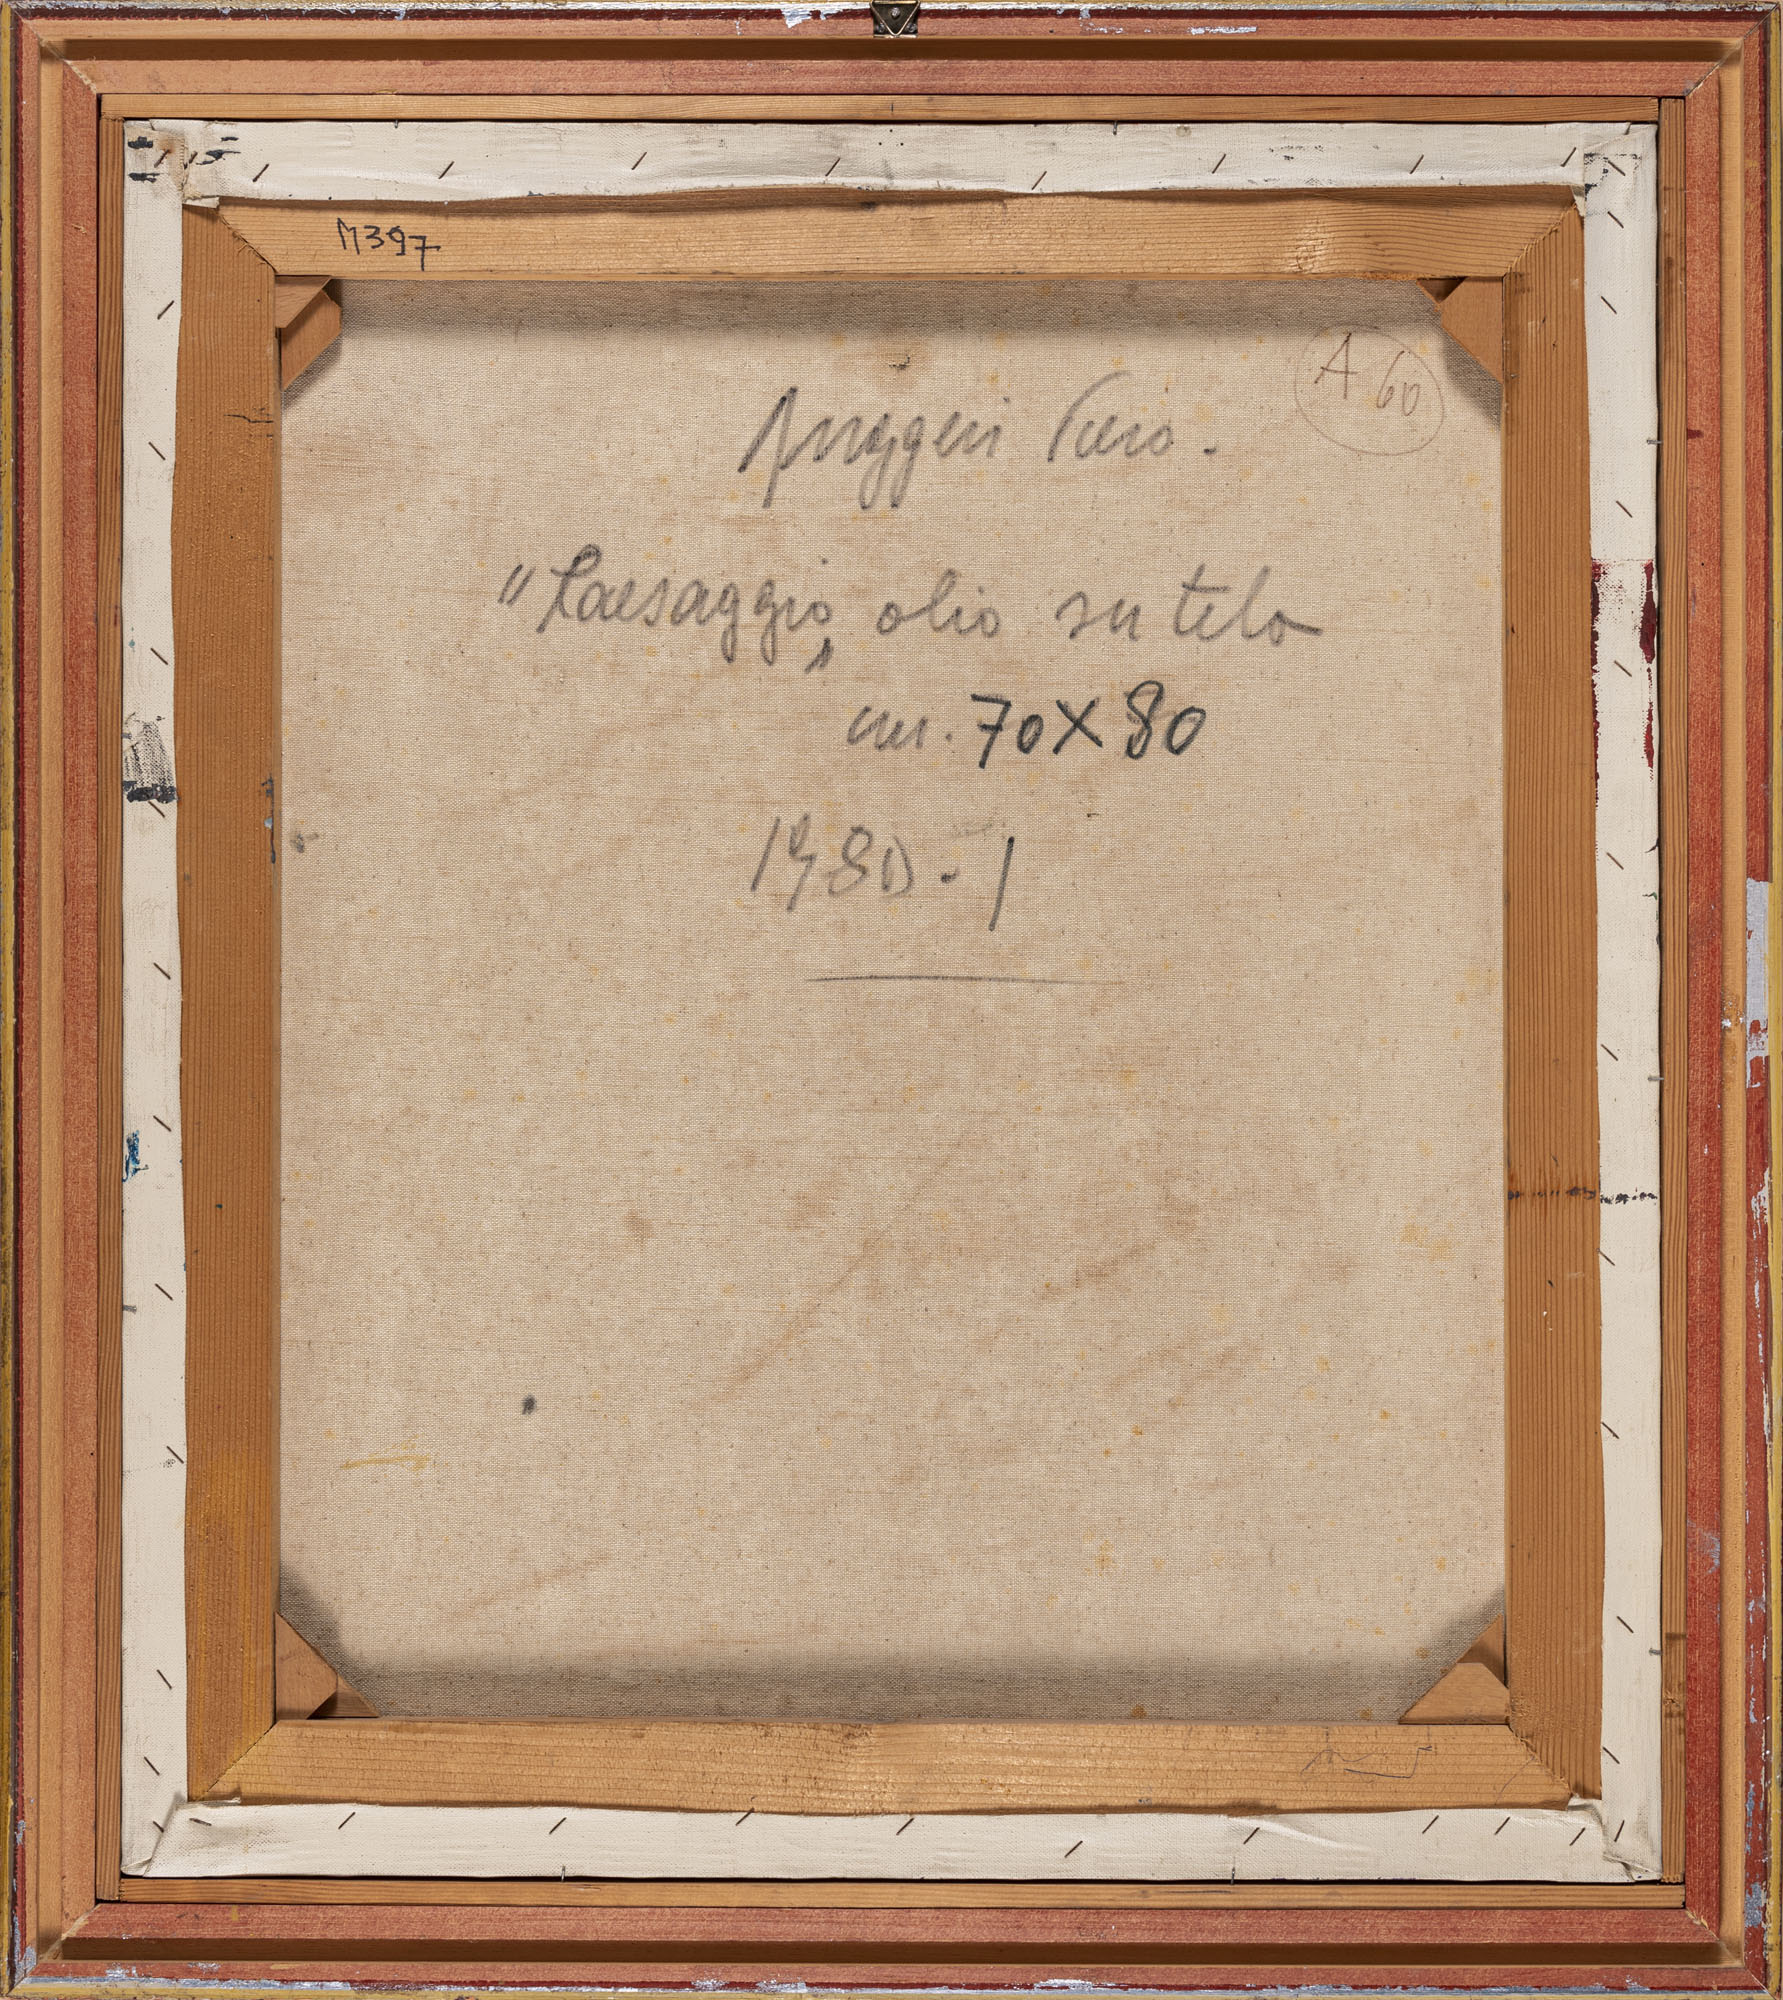 M397
A 60
Ruggeri Piero.
"Paesaggio" olio su tela
cm. 70X80
1980-1